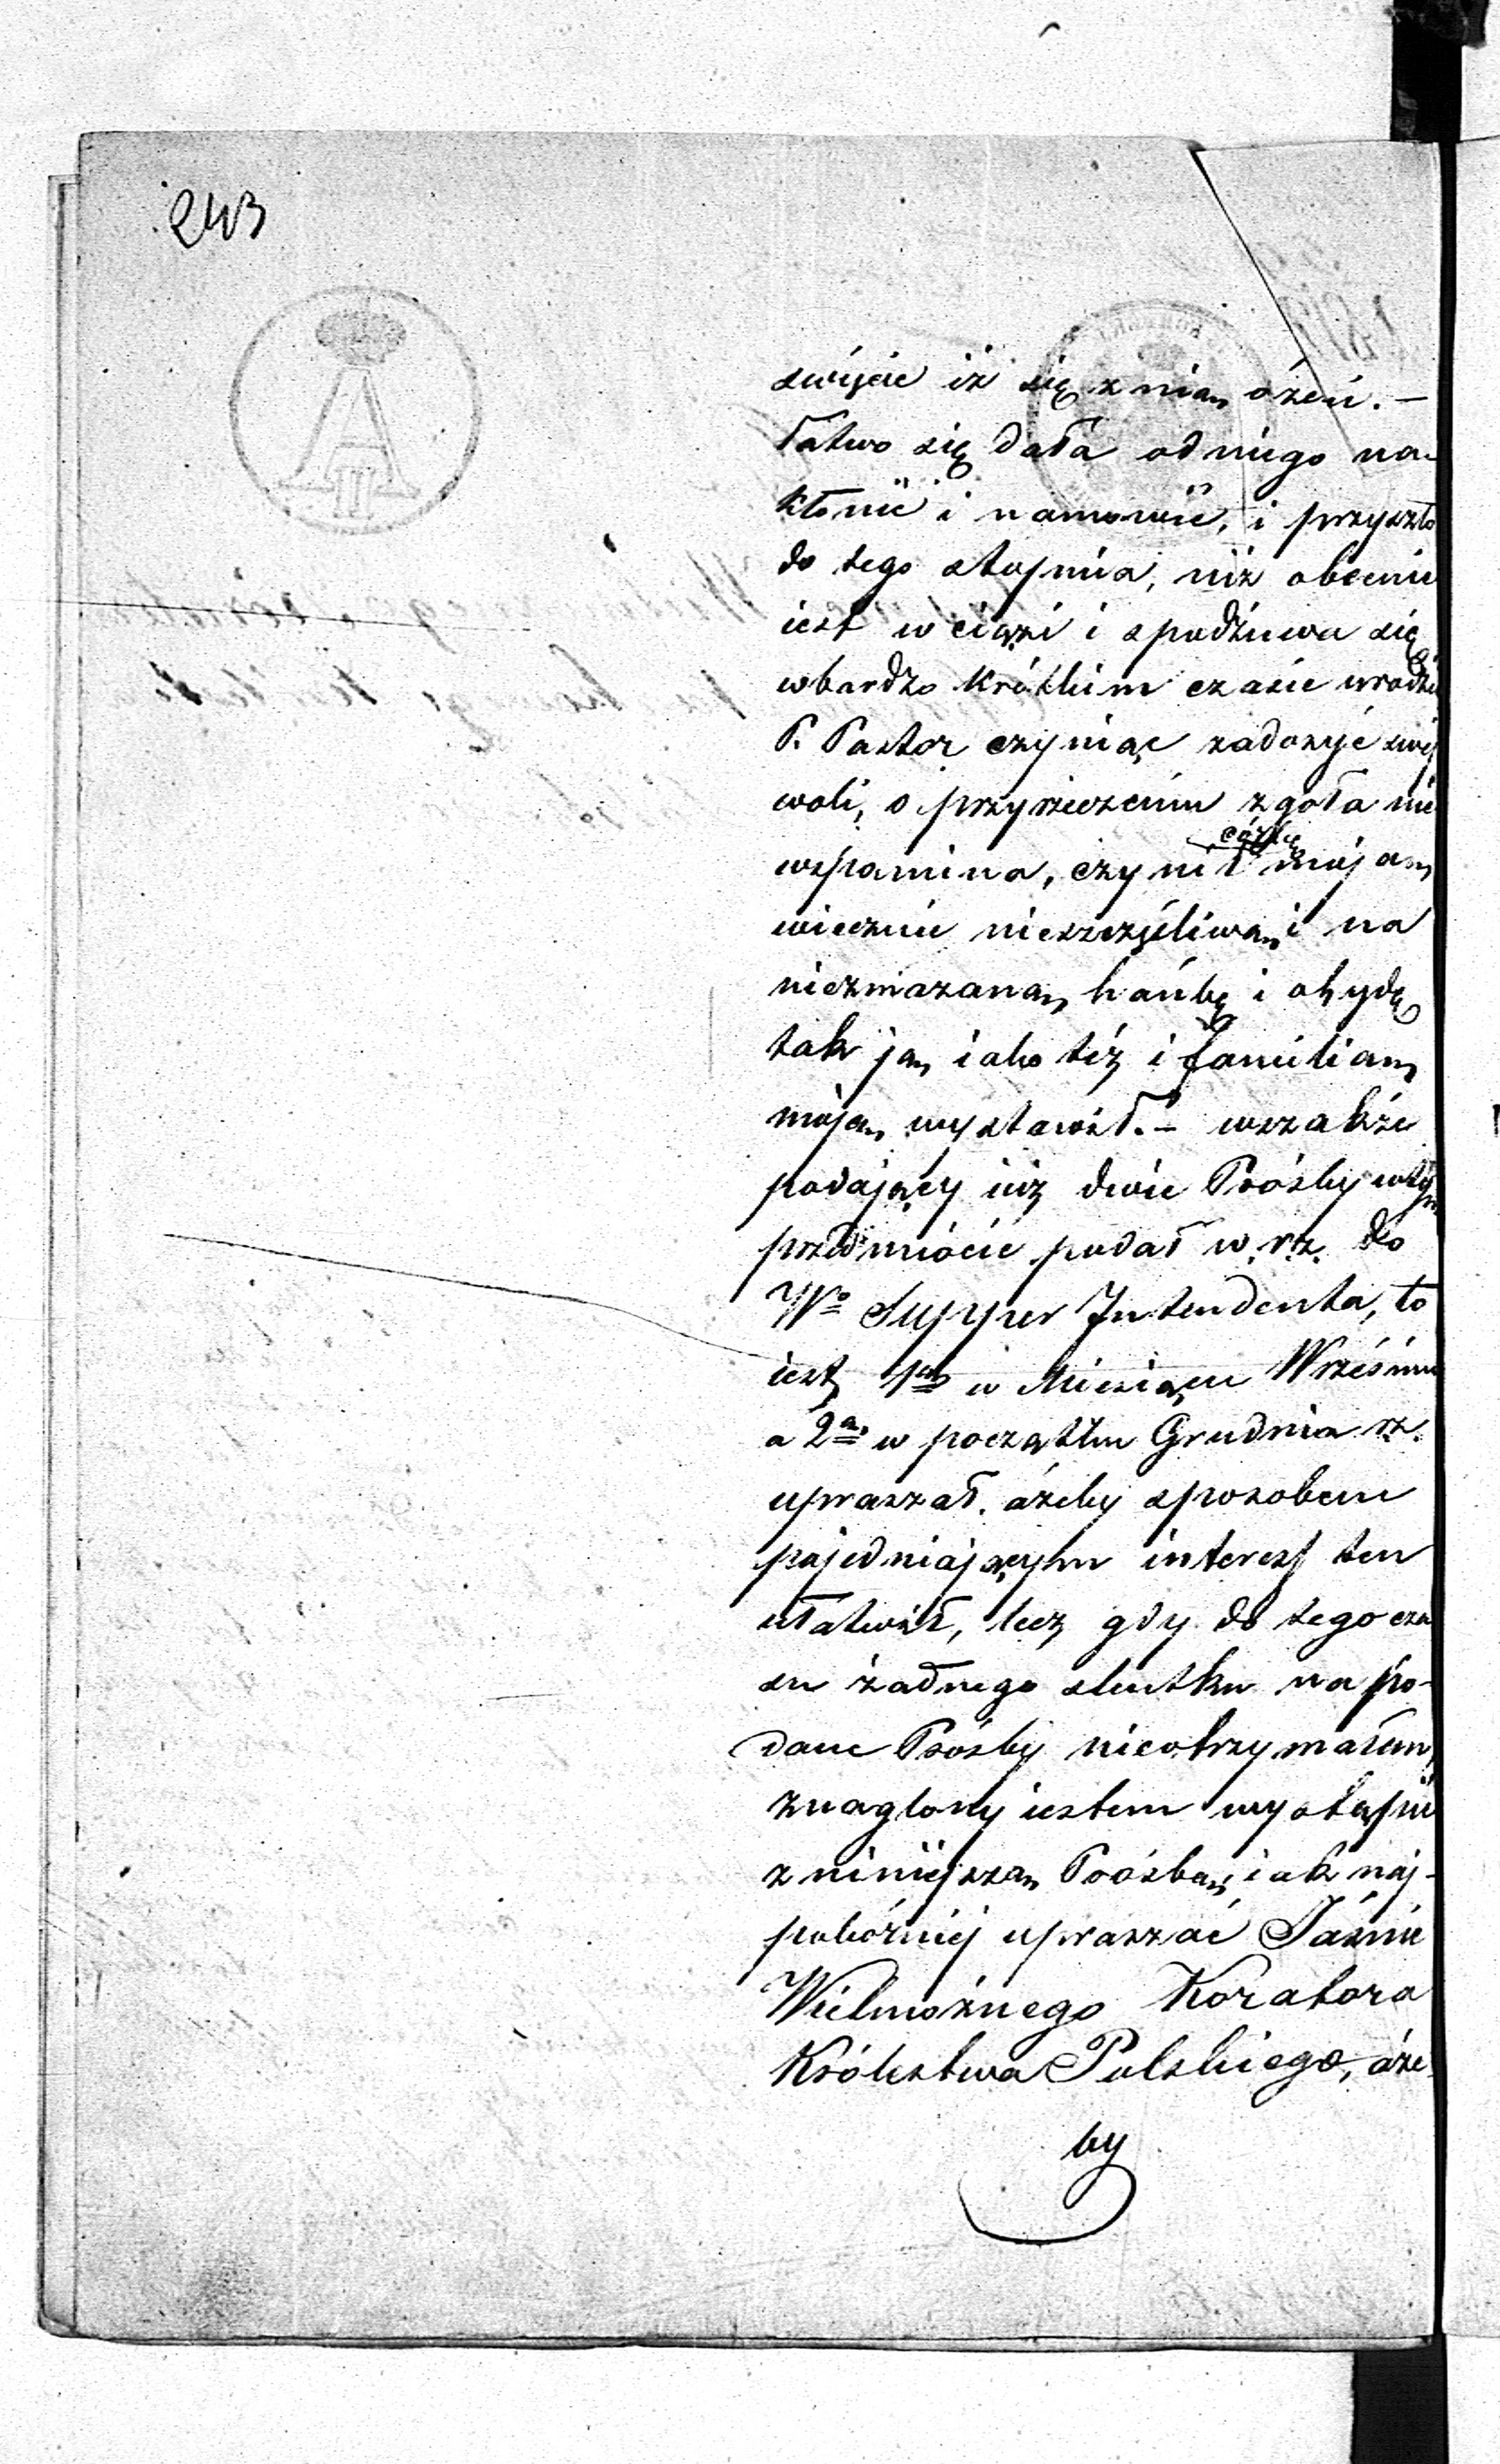 243
A
II
swięcie iż się z nią ożeni. —
łatwo się dała od niego na-
kłonić i namowić, i przyszło
do tego stopnia, niż obecnie
iest w ciąży i spodziewa się
w bardzo krótkim czasie urodzić
P. Pastor czyniąc zadosyć swej
woli, o przyrzeczeniu zgoła nie
córkę
wspamina, czynił mojąm
wiecznie nieszczęśliwąm i na
niezmazanąm háńbę i ohydę
tak jąm iako też i familiąm
mojąm wystawił. — wszakże
podający iuż dwie Prośby w tym
przedmiocie podał w. rz. do
Wo Supper Intendenta, to
iest 1ą w Miesiącu Wrześniu
a 2ą w początku Grudnia rz.
upraszał. áżeby sposobem
pojedniającym interest ten
ułatwił, lecz gdy do tego cza
su żadnego skutku na po-
dane Prośby nieotrzymałem,
znaglony iestem wystąpić
z niniejsząm Prośbąm i ak náj-
pokórniej upraszać Jáśnie
Wielmożnego Koratora
Królestwa Polskiego, áże-
by